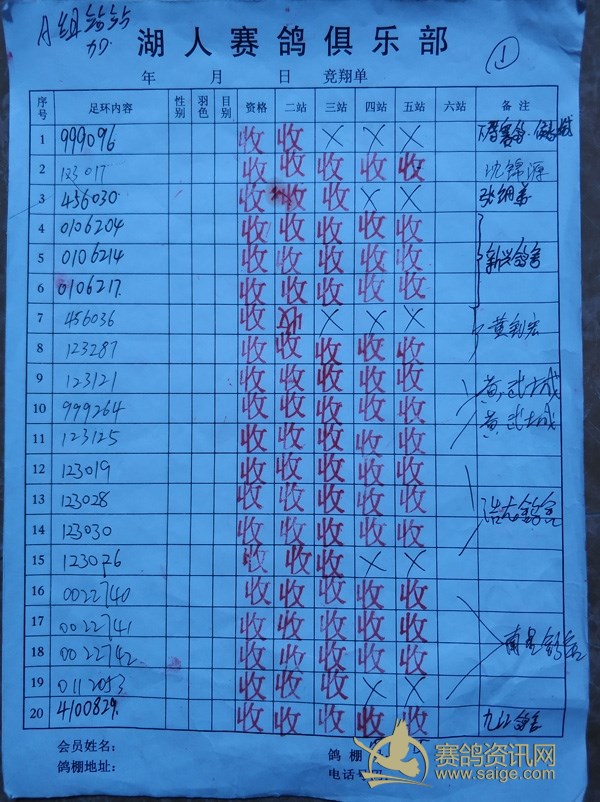 A组
①
湖人赛鸽俱乐部
年 月 日 竞翔单
序号 足环内容 性别 羽色 目别 资格 二站 三站 四站 五站 六站 备注
1 999096 收 收 × × ×
2 123017 收 收 收 收 收 沈锦源
3 456030 收 收 收 × ×
4 0106204 收 收 收 收 收
5 0106214 收 收 收 收 收 新兴鸽舍
6 0106217 收 收 收 收 收
7 456036 收 收 × × × 黄剑宏
8 123287 收 收 收 收 收
9 123121 收 收 收 收 收 黄武城
10 999264 收 收 收 收 收 黄武城
11 123125 收 收 收 收 收
12 123019 收 收 收 收 收
13 123028 收 收 收 收 收
14 123030 收 收 收 收 收
15 123026 收 收 收 × ×
16 0022740 收 收 收 收 收
17 0022741 收 收 收 收 收
18 0022742 收 收 收 收 收
19 0112053 收 收 收 × ×
20 4100829 收 收 收 收 收 九江鸽舍
会员姓名: 鸽棚
鸽棚地址: 电话号码:
赛鸽资讯网
www.saige.com